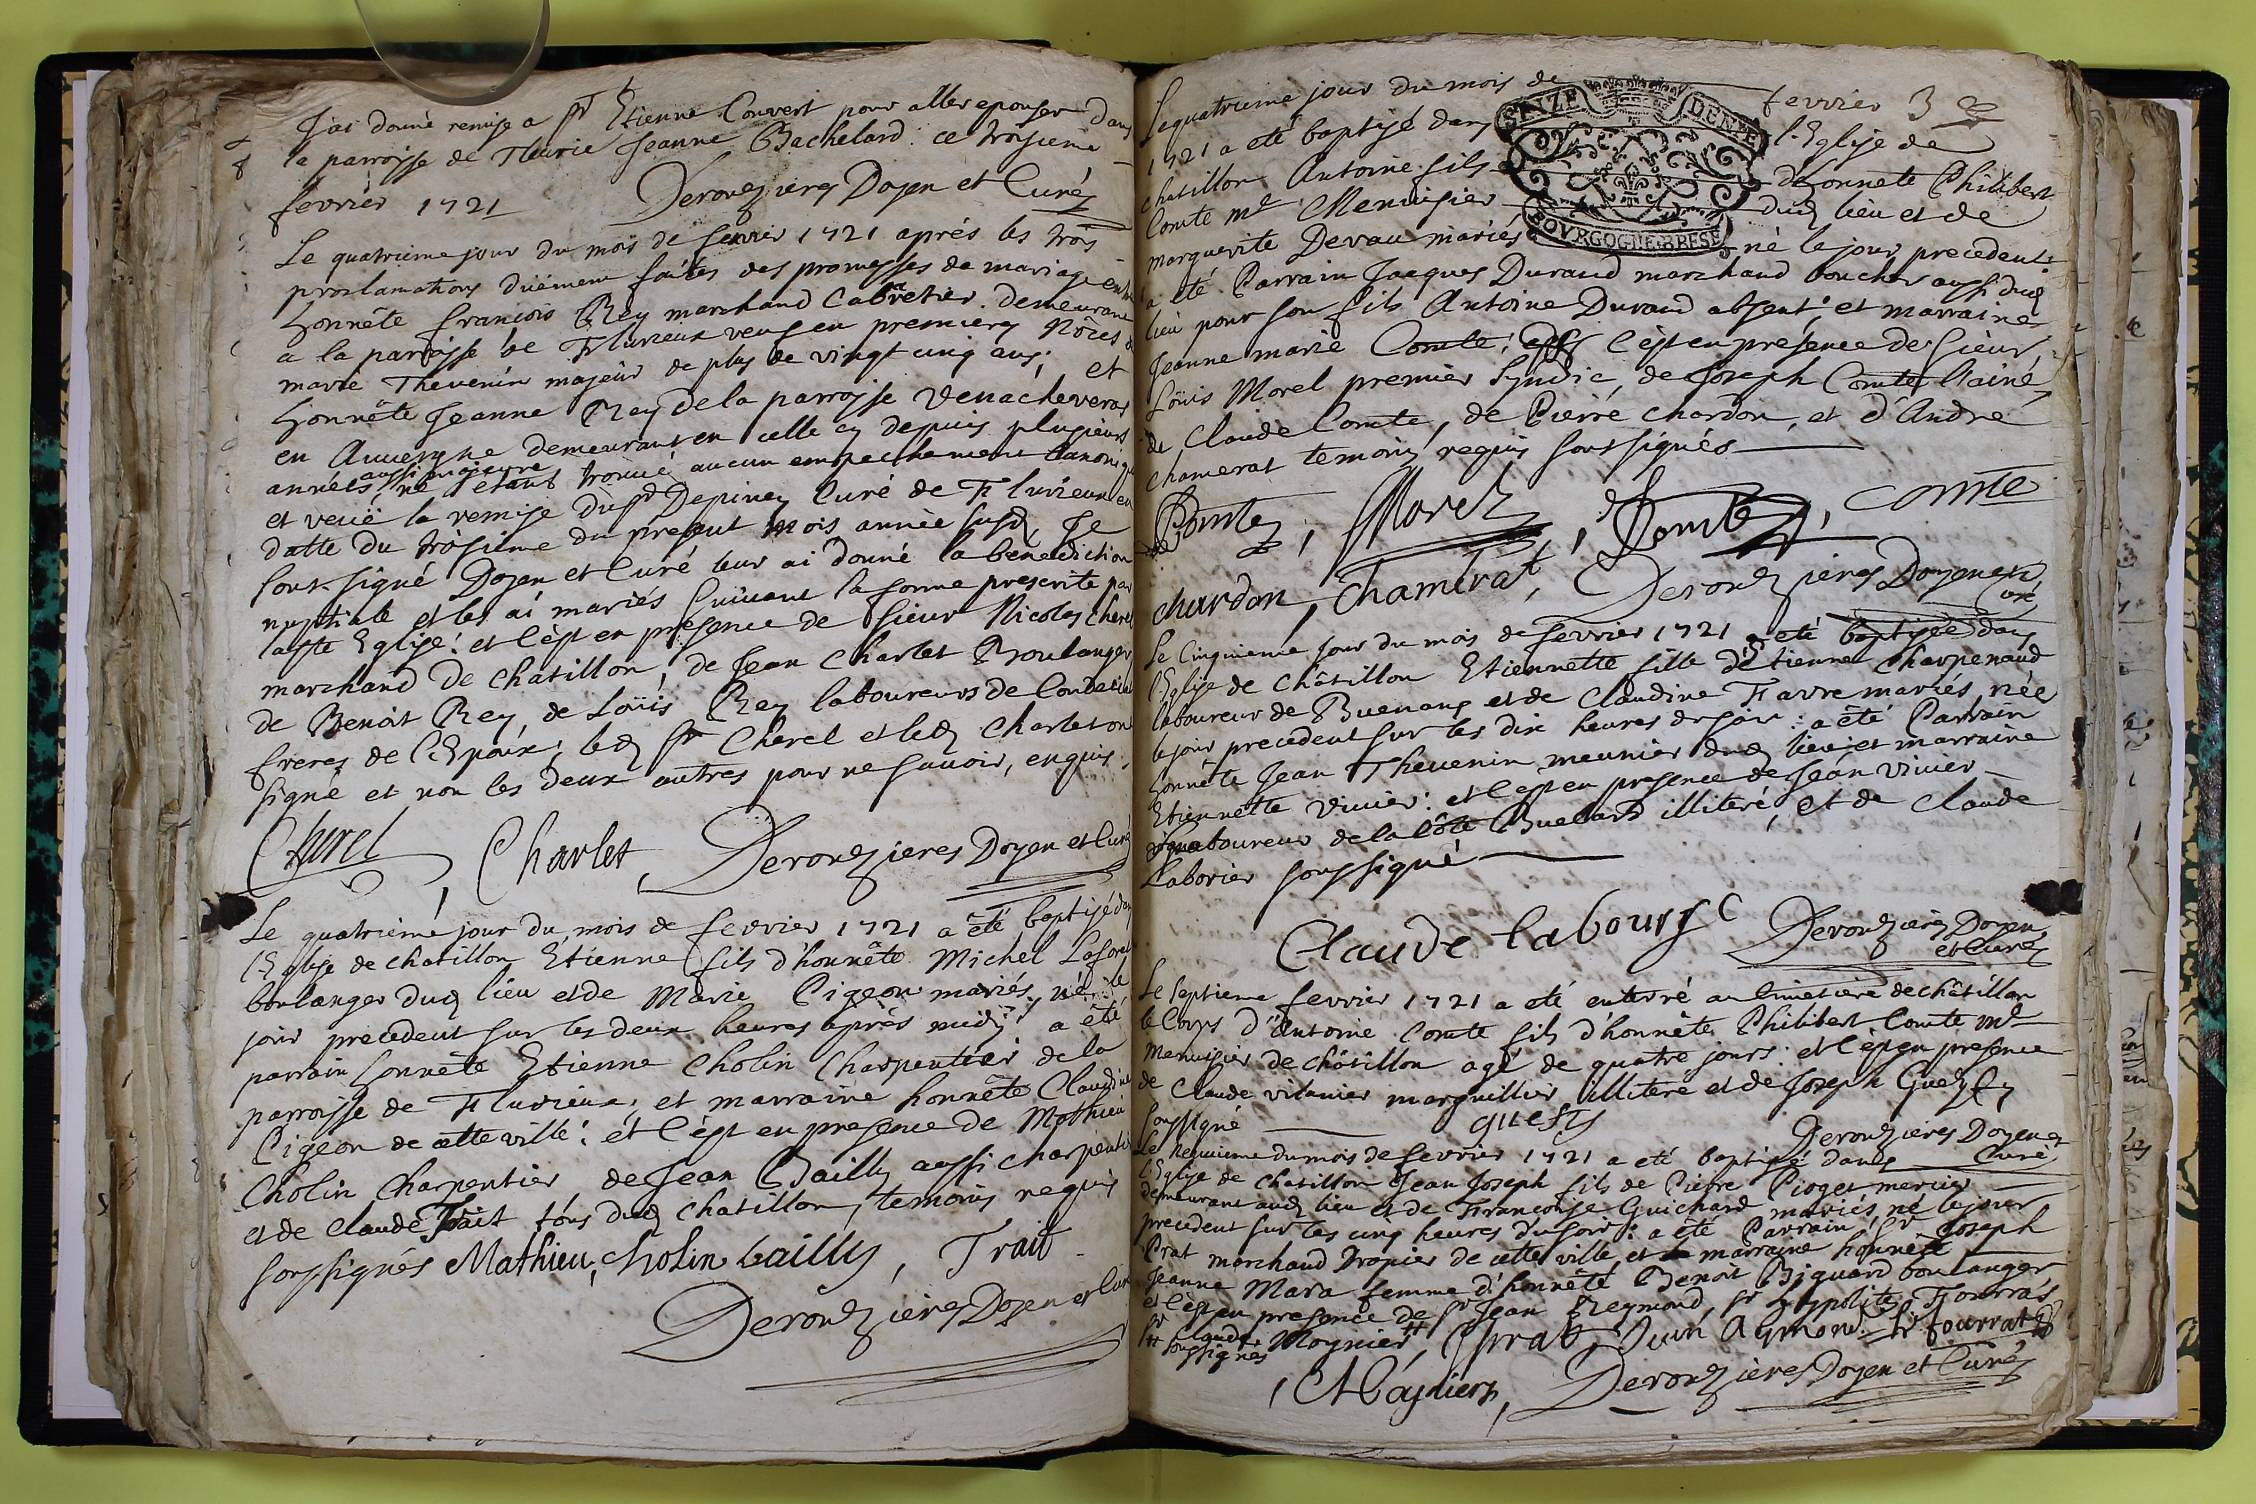 J'ai donné remise a sr Etienne Couvert pour aller epouser dans
la parroisse de Fleurie Jeanne Bachelard ce troisieme
fevrier 1721 Derouzieres Doyen et Curé
Le quatrieme jour du mois de fevrier 1721 aprés les trois
proclamations düement faites des promesses de mariage entre
honnête francois Rey marchand Cabaretier demeurant
a la parroisse de Flurieux veuf en premiers Noces de
marie Thevenin majeur de plus de vingt cinq ans; et
honnête Jeanne Rey de la parroisse
en Auvergne demeurant en celle cy depuis plusieurs
années aussi majeure ne s'etant trouvé aucun empechement Canonique
et veüe la remise du sr Depiney Curé de Flurieux en
datte du troisieme du present mois année susd Je
sous-signé Doyen et Curé leur ai donné la benediction
nuptiale et les ai mariés suivant la forme prescrite par
laste Eglise: et c'est en presence de sieur Nicolas Cherel
marchand de chatillon, de Jean Charlet Boulanger
de Benoit Rey, de Loüis Rey laboureurs de
freres de l'Epoux; led sr Cherel et led Charlet ont
signé et non les deux autres pour ne savoir, enquis.
Cherel, Charlet, Derouzieres Doyen et Curé
Le quatriéme jour du mois de fevrier 1721 a été baptisé dans
l'Eglise de chatillon Etienne fils d'honnête Michel Laforest
boulanger dud lieu et de Marie Pigeon mariés, né le
jour precedent sur les deux heures aprés midy: a été
parrain honnête Etienne Cholin Charpentier de la
parroisse de Flurieux, et marraine honnête Claudine
Pigeon de cette ville: et c'est en presence de Mathieu
Cholin Charpentier de Jean Bailly aussi charpentier
et de Claude Trait tous dud chatillon, temoins requis
soussignés Mathieu, Cholin bailly, Trait
Derouzieres Doyen et Curé
Le quatrieme jour du mois de fevrier 3
SEIZE DENIE
1721 a eté baptisé dans l'Eglise de
chatillon Antoine fils d'honnete Philibert
Comte me Menuisier dud lieu et de
marguerite Devau mariés né le jour precedent:
BOURGOGNE BRESE
a été Parrain Jacques Durand marchand boucher aussi dud
lieu pour son fils Antoine Durand absent: et marraine
Jeanne marie Comte: c'est en présence de sieur
Loüis Morel premier Syndic, de Joseph Comte l'ainé
de Claude Comte, de Pierre Chardon, et d'André
Chamerat temoins requis soussignés
Comte, Morel, J Comte, Comte
chardon, Chamerat, Derouzieres Doyen et Curé
Le Cinquieme jour du mois de fevrier 1721 a eté baptisée dans
l'Eglise de Châtillon Etiennette fille d'Etienne Charpenaud
laboureur de Buenans et de Claudine Favre mariés, née
le jour precedent sur les dix heures de soir: a été Parrain
honnête Jean Thevenin meunier dud lieu et marraine
Etiennette Vivier: et c'est en presence de Jean Vivier
laboureur de la Côte Buelard illiteré, et de Claude
Laborier soussigné
Claude labourgc Derouzieres Doyen
et Curé
Le Septieme fevrier 1721 a eté enterré au Cimetiere de châtillon
le Corps d'Antoine Comte fils d'honnête Philibert Comte me
Menuisier de châtillon agé de quatre jours: et c'est en presence
de Claude vitanier marguillier illiteré et de Joseph
soussigné Derouzieres Doyen et
Le Neuvieme du mois de fevrier 1721 a eté baptisé dans Curé
l'Eglise de Chatillon Jean Joseph fils de Pierre Pioget mercier
demeurant aud lieu et de Francoise Guichard mariés, né le jour
precedent sur les cinq heures du soir: a été Parrain sr Joseph
Prat marchand Drapier de cette ville, et marraine honnête
Jeanne Mara femme d'honnête Benoit Biguard boulanger
et c'est en presence de sr Jean Reymond, sr Hyppolite Fourras
sr Claude Moynier, Prat, Jean Aymond, fourrat
soussignés
Moynier, Derouzieres Doyen et Curé